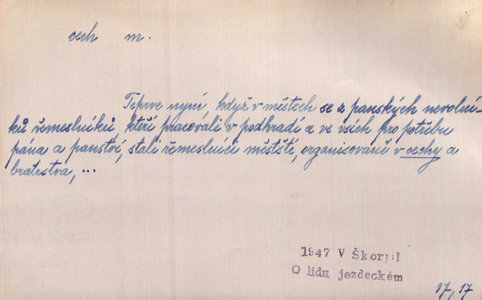 cech m.
Teprve nyní, když v městech se z panských nevolní-
ků řemeslníků kteří pracovali v podhradí a ve vsích pro potřebu
pána a panství, stali řemeslníci městští, organisovaní v cechy a
bratrstva, ...
1947 V Škorpil
O lidu jezdeckém
17, 17